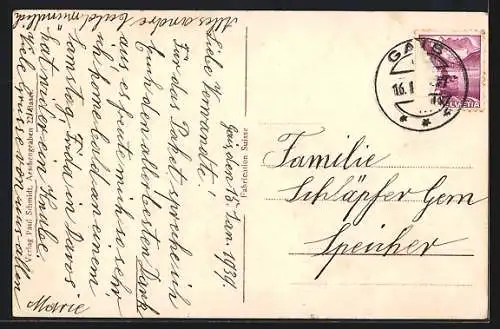 Gais, den 15. Jan. 1939.
Liebe Verwandte.
Für das Paket spreche ich
Euch den allerbesten Dank
aus, es freute mich so sehr,
ich komme bald an einem
Samstag, Frida in Davos
hat wieder ein
Viele Grüsse von uns allen
Marie
Alles andere bald mündlich
Familie
Schläpfer Gern
Speicher
GAIS
16.
HELVETIA
Fabrication Suisse
Verlag Paul Schmidt,